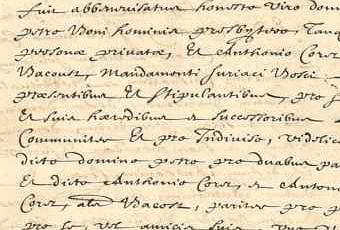 fuit abbenevisatum honesto viro dom
petro Boni hominis presbytero, Tanq
personæ privatæ, Et Anthonio Coror
Bacout, mandamenti suriaci Bosci
præsentibus Et stipulantibus, pro s
Et suis hæredibus et successoribus
Communiter Et pro Indiviso, videlic
dicto domino petro pro duabus pa
Et dicto Anthonio Coror, et Antoni
Coror, alas Bacout, pariter pro p
pro se, vel amicis suis